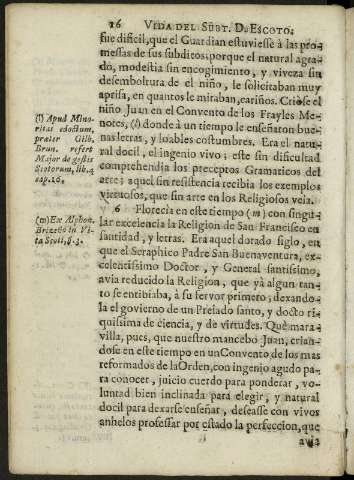 16 VIDA DEL SUBT. D. ESCOTO.
fue dificil, que el Guardian estuviesse à las pro-
messas de sus subditos: porque el natural agra-
do, modestia sin encogimiento, y viveza sin
desemboltura de el niño, le solicitaban muy
aprisa, en quantos le miraban, cariños. Criòse el
niño Juan en el Convento de los Frayles Me-
nores, (l) donde à un tiempo le enseñaron bue-
nas letras, y loables costumbres. Era el natu-
ral docil, el ingenio vivo; este sin dificultad
comprehendia los preceptos Gramaticos del
arte; aquel sin resistencia recibia los exemplos
virtuosos, que sin arte en los Religiosos veìa.
6 Florecia en este tiempo (m) con singu-
lar excelencia la Religion de San Francisco en
santidad, y letras. Era aquel dorado siglo, en
que el Seraphico Padre San Buenaventura, ex-
celentissimo Doctor, y General santissimo,
avia reducido la Religion, que yà algun tan-
to se entibiaba, à su fervor primero; dexando-
la el govierno de un Prelado santo, y docto ri-
quissima de ciencia, y de virtudes. Què mara-
villa, pues, que nuestro mancebo Juan, crian-
dose en este tiempo en un Convento de los mas
reformados de la Orden, con ingenio agudo pa-
ra conocer, juicio cuerdo para ponderar, vo-
luntad bien inclinada para elegir, y natural
docil para dexarse enseñar, deseasse con vivos
anhelos professar por estado la perfeccion, que
avia
(l) Apud Mino-
ritas edoctum,
præter Gilb.
Brun. refert
Major de gestis
Scotorum, lib. 4
cap. 16.
(m) Ex Alphon.
Brizeño in Vi-
ta Scoti, §. 3.